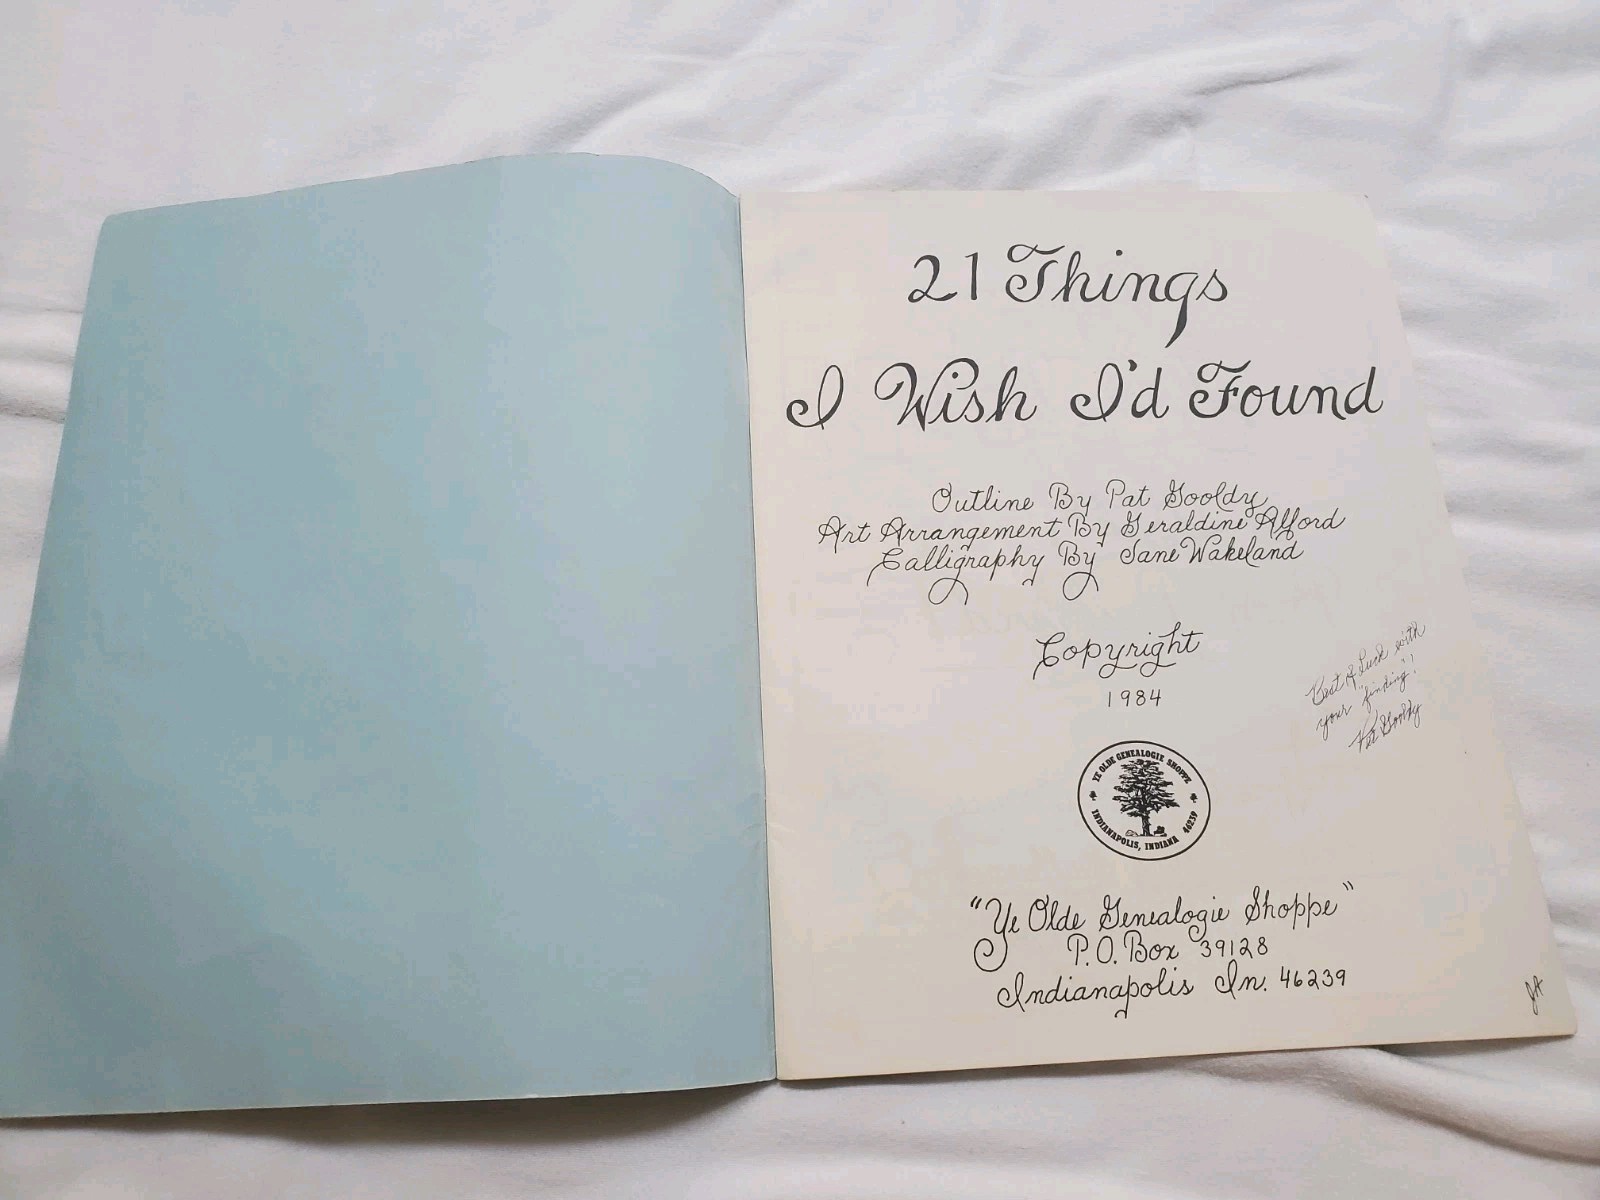 21 Things
I Wish I'd Found
Outline By Pat Gooldy
Art Arrangement By Geraldine Alford
Calligraphy By Jane Wakeland
Copyright
1984
Best of Luck with
your "finding"!
Pat Gooldy
YE OLDE GENEALOGIE SHOPPE
INDIANAPOLIS, INDIANA 46239
"Ye Olde Genealogie Shoppe"
P.O. Box 39128
Indianapolis In. 46239
JA